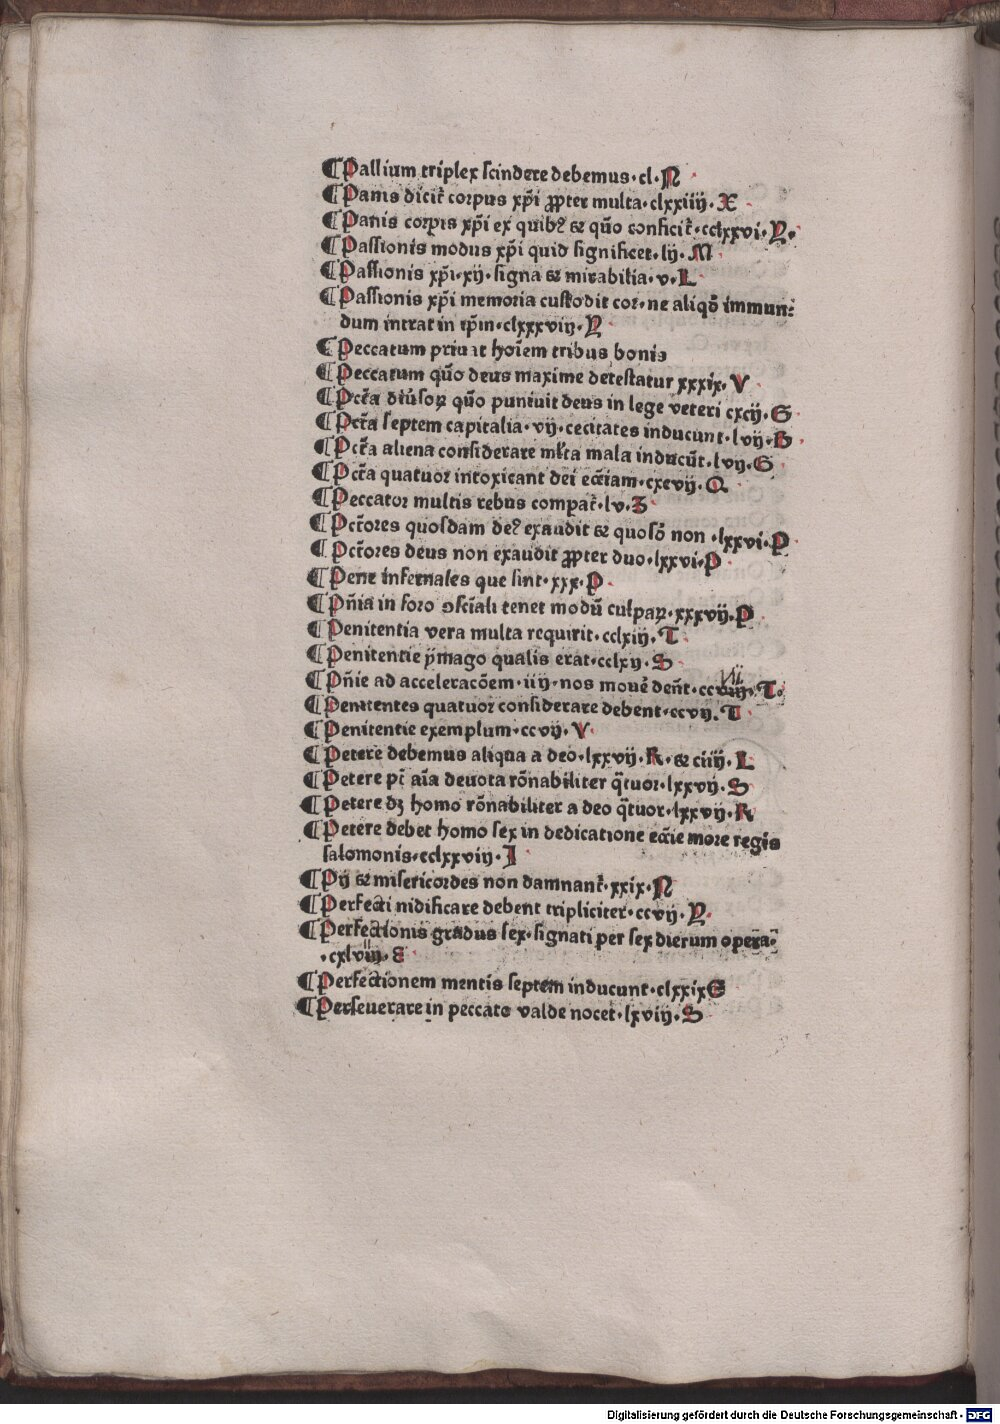 ¶Pallium triplex scindere debemus·cl·N
¶Panis dicit᷑ corpus xp̄i ꝓpter multa·clxxiiij·X
¶Panis corpis xp̄i ex quibꝰ ⁊ quō conficit᷑·cclxxvi·Y·
¶Passionis modus xp̄i quid significet·lij·M
¶Passionis xp̄i·xij·signa ⁊ mirabilia·v·L
¶Passionis xp̄i memoria custodit cor·ne aliqđ immun-
dum intrat in ip̄m·clxxxviij·Y
¶Peccatum priuat hoīem tribus bonis
¶Peccatum quō deus maxime detestatur xxxix·V
¶Pctā diūsoꝝ quō puniuit deus in lege veteri cxcij·G
¶Pctā septem capitalia·vij·cecitates inducunt·lvij·B
¶Pctā aliena considerare ml̄ta mala inducūt·lvij·G
¶Pctā quatuor intoxicant dei eccīam·cxcvij·Q
¶Peccator multis rebus compat᷑·lv·Z
¶Pctōres quosdam deꝰ exaudit ⁊ quosđ non·lxxvi·P
¶Pctōres deus non exaudit ꝓpter duo·lxxvi·P
¶Pene infernales que sint·xxx·P
¶Pn̄ia in foro ꝯsciāli tenet modū culpaꝝ·xxxvij·P
¶Penitentia vera multa requirit·cclxiij·T
¶Penitentie ymago qualis erat·cclxij·S
¶Pn̄ie ad acceleracōem·iiij·nos mouē den̄t·ccviij·T·
vii
¶Penitentes quatuor considerare debent·ccvij·T
¶Penitentie exemplum·ccvij·V
¶Petere debemus aliqua a deo·lxxvij·R·⁊ ciiij·L
¶Petere pt̄ aīa deuota rōnabiliter q̄tuor·lxxvij·S
¶Petere dꝫ homo rōnabiliter a deo q̄tuor·lxxvij·R
¶Petere debet homo sex in dedicatione eccīe more regis
salomonis·cclxxviij·I
¶Pij ⁊ misericordes non damnant᷑·xxix·N
¶Perfecti nidificare debent tripliciter·ccvij·Y·
¶Perfectionis gradus sex·signati per sex dierum opera-
·cxlviij·E
¶Perfectionem mentis septem inducunt·clxxix E
¶Perseuerare in peccato valde nocet·lxviij·S
Digitalisierung gefördert durch die Deutsche Forschungsgemeinschaft - DFG